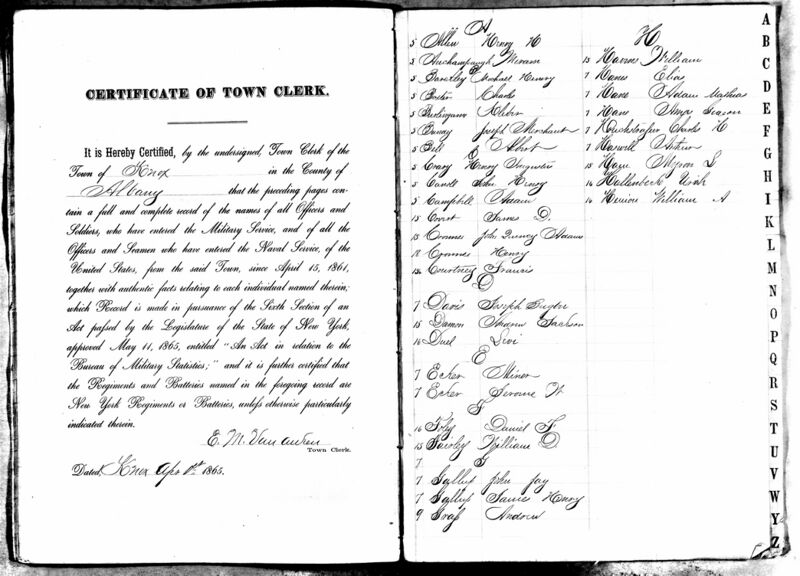 CERTIFICATE OF TOWN CLERK.
It is Hereby Certified, by the undersigned, Town Clerk of the
Town of Knox in the County of
Albany that the preceding pages con-
tain a full and complete record of the names of all Officers and
Soldiers, who have entered the Military Service, and of all the
Officers and Seamen who have entered the Naval Service, of the
United States, from the said Town, since April 15, 1861,
together with authentic facts relating to each individual named therein;
which Record is made in pursuance of the Sixth Section of an
Act passed by the Legislature of the State of New York,
approved May 11, 1865, entitled "An Act in relation to the
Bureau of Military Statistics;" and it is further certified that
the Regiments and Batteries named in the foregoing record are
New York Regiments or Batteries, unless otherwise particularly
indicated therein.
E. M. Van Auken
Town Clerk.
Dated, Knox Apr 1st 1865.
A
5 Allen Henry H
5 Auchampaugh Hiram
B
5 Barckley Michael Henry
5 Charles
5 Burlingame
5 Joseph Merchant
5 Bell Albert
C
5 Crary Henry
5 John Henry
5 Campbell Adam
15 James D.
15 John Quincy Adams
12 Henry
Courtney Francis
D
7 Davis Joseph
15 Damon Jackson
16 Duel Levi
E
7 Ecker Minor
7 Ecker Jerome W
F
16 Foly Daniel F
15 William D
7
G
7 Gallup John Jay
7 Gallup James Henry
9 Andrew
H
15 William
7 Hanes Elias
7 Hane Adam Mathias
7 Hane
7 Charles H
7
15 Myron L
16 Hallenbeck
16 William A
A
B
C
D
E
F
G
H
I
K
L
M
N
O
P
Q
R
S
T
U
V
W
Y
Z